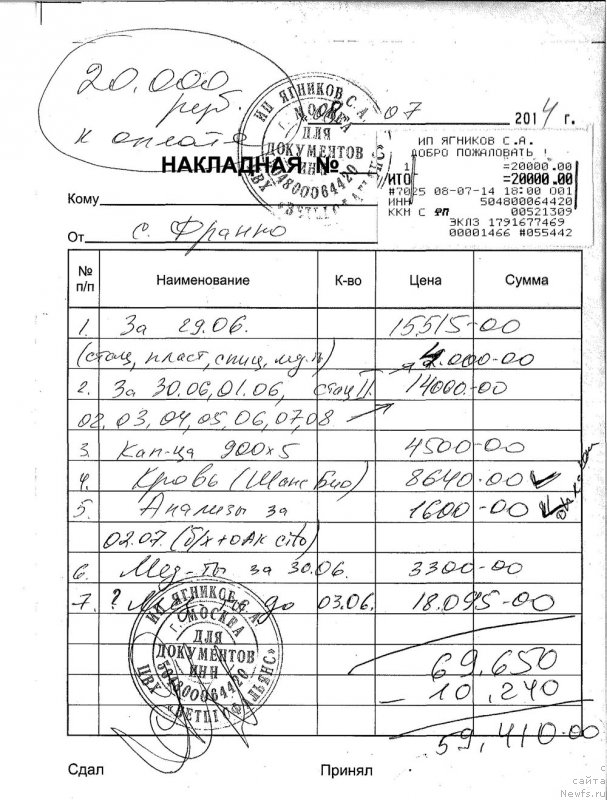 20.000
руб.
к оплате
07 2014 г.
ИП ЯГНИКОВ С.А. Г. МОСКВА
ДЛЯ
ДОКУМЕНТОВ
ИНН
504800064420
ЦВХ «ВЕТПРОФАЛЬЯНС»
ИП ЯГНИКОВ С.А.
ДОБРО ПОЖАЛОВАТЬ !
1 =20000.00
ИТОГ =20000.00
#7025 08-07-14 18:00 001
ИНН 504800064420
ККМ С ФП 00521309
ЭКЛЗ 1791677469
00001466 #055442
НАКЛАДНАЯ №
Кому
От с. Франко
№ п/п Наименование К-во Цена Сумма
1. За 29.06. 15515-00
(стац, пласт, спиц, мд.п) .000-00
2. За 30.06, 01.06, стац II. 14000-00
02.03,04,05,06,07,08
3. Кап-ца 900х5 4500-00
4. Кровь (Шанс Био) 8640-00
5. Анализы за 1600-00
02.07 (б/х + оАк cito)
6. Мед-ты за 30.06. 3300-00
7. ? до 03.06. 18.095-00
ИП ЯГНИКОВ С.А. Г. МОСКВА
ДЛЯ
ДОКУМЕНТОВ
ИНН
504800064420
ЦВХ «ВЕТПРОФАЛЬЯНС»
69.650
- 10,240
59,410-00
Сдал Принял
с сайта
Newfs.ru